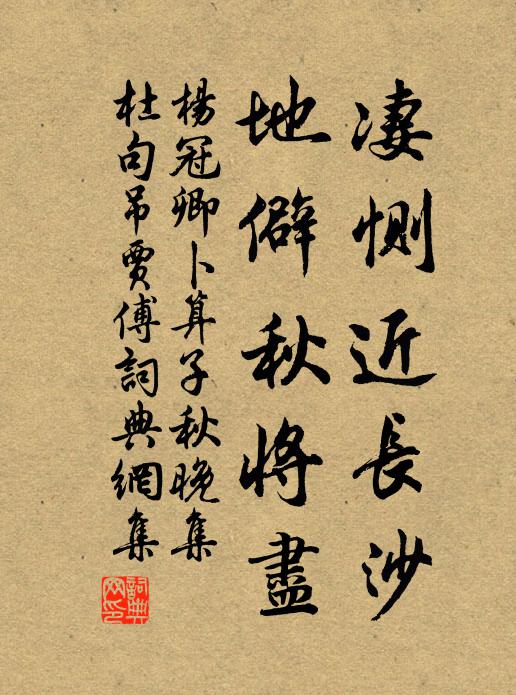 凄惻近長沙
地僻秋將盡
楊冠卿卜算子秋晚集
杜句吊賈傅詞典網集
詞典網印